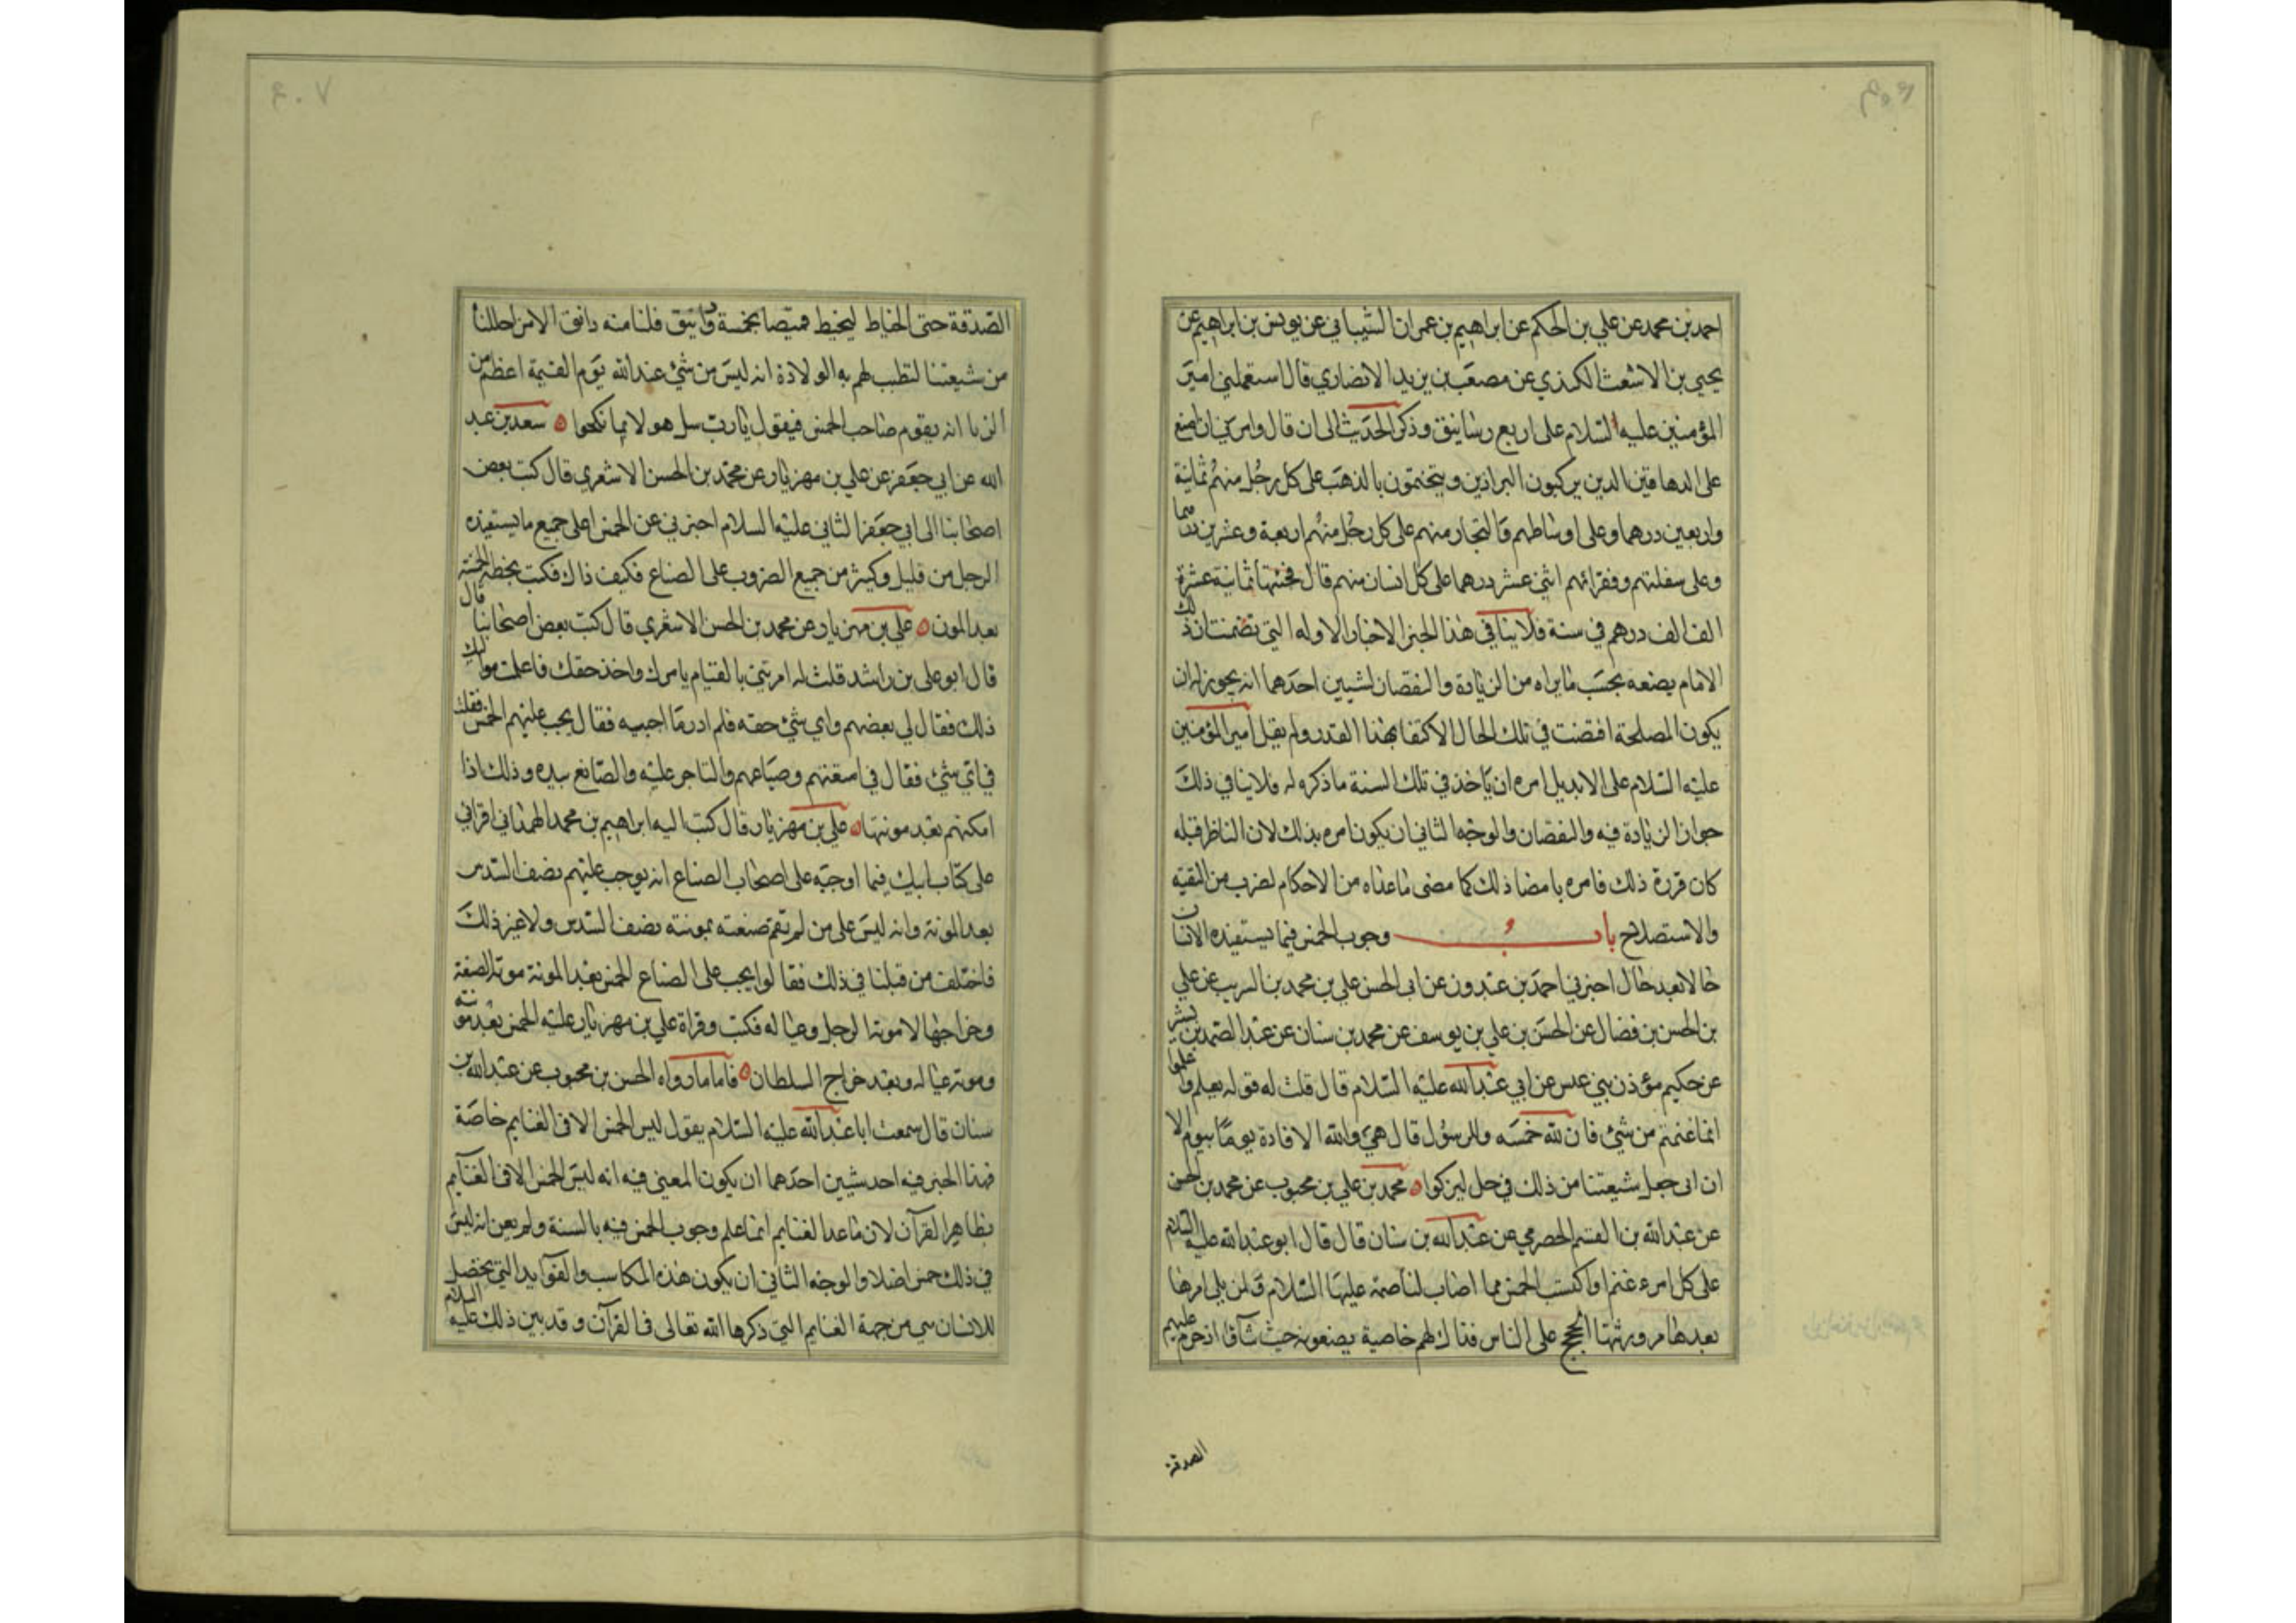 احمد بن محمد عن علي بن الحكم عن ابراهيم بن عمران الشيباني عن يونس بن ابراهيم عن
يحيى بن الاشعث الكرذي عن مصعب بن يزيد الانصاري قال استعملني امير
المؤمنين عليه السلام على اربع رساتيق وذكر الحديث الى ان قال وامرني ان اضع
على الدهاقين الدين يركبون البراذين ويتختمون بالذهب على كل رجل منهم ثمانية
واربعين درهما وعلى اوساطهم والتجار منهم على كل رجل منهم اربعة وعشرين درهما
وعلى سفلتهم وفقرائهم اثنى عشر درهما على كل انسان منهم قال فجبيتها ثمانية عشرة
الف الف درهم في سنة فلا ينافي هذا الخبر الاخبار الاوله التي تضمنت ان ذلك
الامام يصنعه بحسب مايراه من الزيادة والنقصان لشيين احدهما انه يجوز ان
يكون المصلحة اقتضت في تلك الحال الاكتفا بهذا القدر ولم يقل امير المؤمنين
عليه السلام على الابد بل امره ان ياخذ في تلك السنة ما ذكره له فلا ينافي ذلك
جواز الزيادة فيه والنقصان والوجه الثاني ان يكون امره بذلك لان الناظر قبله
كان قرره ذلك فامره بامضا ذلك كما مضى ماعداه من الاحكام لضرب من التقية
والاستصلاح باب وجوب الخمس فيما يستفيده الانسان
حالا بعد حال اخبرني احمد بن عبدون عن ابى الحسن علي بن محمد بن الزبير عن علي
بن الحسن بن فضال عن الحسن بن علي بن يوسف عن محمد بن سنان عن عبد الصمد بن بشير
عن حكيم مؤذن بني عبس عن ابي عبد الله عليه السلام قال قلت له قوله تعالى واعلموا
انما غنمتم من شئ فان لله خمسه وللرسول قال هي والله الافادة يوما بيوم الا
ان ابى جعل شيعتنا من ذلك في حل ليزكوا ه محمد بن علي بن محبوب عن محمد بن الحسن
عن عبد الله بن القسم الحضرمي عن عبد الله بن سنان قال قال ابو عبد الله عليه السلام
على كل امرء غنم او اكتسب الخمس مما اصاب لفاطمة عليها السلام ولمن يلي امرها
بعدها من ورثتها الحجج على الناس فذاك لهم خاصة يضعونه حيث شآؤا اذ حرم عليهم
الصدقة
الصدقة حتى الخياط ليخيط قميصا بخمسة دوانيق فلنا منه دانق الا من احللنا
من شيعتنا لتطيب لهم به الولادة انه ليس من شئ عند الله يوم القيمة اعظم من
الزنا انه يقوم صاحب الخمس فيقول يارب سل هولاء بما نكحوا ه سعد بن عبد
الله عن ابي جعفر عن علي بن مهزيار عن محمد بن الحسن الاشعري قال كتب بعض
اصحابنا الى ابي جعفر الثاني عليه السلام اخبرني عن الخمس اعلى جميع ما يستفيده
الرجل من قليل وكثير من جميع الضروب على الصناع فكيف ذاك فكتب بخطه الخمس
بعد المون ه علي بن مهزيار عن محمد بن الحسن الاشعري قال كتب بعض اصحابنا قال
قال ابو علي بن راشد قلت له امرتني بالقيام بامرك واخذ حقك فاعلمت مواليك
ذلك فقال لي بعضهم واي شئ حقه فلم ادر ما اجيبه فقال يجب عليهم الخمس فقلت
في اي شئ فقال في امتعتهم وضياعهم والتاجر عليه والصانع بيده وذلك اذا
امكنهم بعد مونتها ه علي بن مهزيار قال كتب اليه ابراهيم بن محمد الهمذاني اقراني
علي كتاب ابيك فيما اوجبه على اصحاب الضياع انه يوجب عليهم نصف السدس
بعد المونة وانه ليس على من لم تقم صنعته بمونته نصف السدس ولا غير ذلك
فاختلف من قبلنا في ذلك فقالوا يجب على الضياع الخمس بعد المونة مونة الضيعة
وخراجها لا مونة الرجل وعياله فكتب وقراه علي بن مهزيار عليه الخمس بعد مونته
ومونة عياله وبعد خراج السلطان ه فاما ما رواه الحسن بن محبوب عن عبد الله بن
سنان قال سمعت ابا عبد الله عليه السلام يقول ليس الخمس الا في الغنايم خاصة
فهذا الخبر فيه احد شيين احدهما ان يكون المعنى فيه انه ليس الخمس الا في الغنآيم
بظاهر القرآن لان ماعدا الغنايم انما علم وجوب الخمس فيه بالسنة ولم يعن انه ليس
في ذلك خمس اصلا والوجه الثاني ان يكون هذه المكاسب والفوآيد التي تحصل
للانسان هي من جملة الغنايم التي ذكرها الله تعالى في القرآن وقد بين ذلك عليه السلام